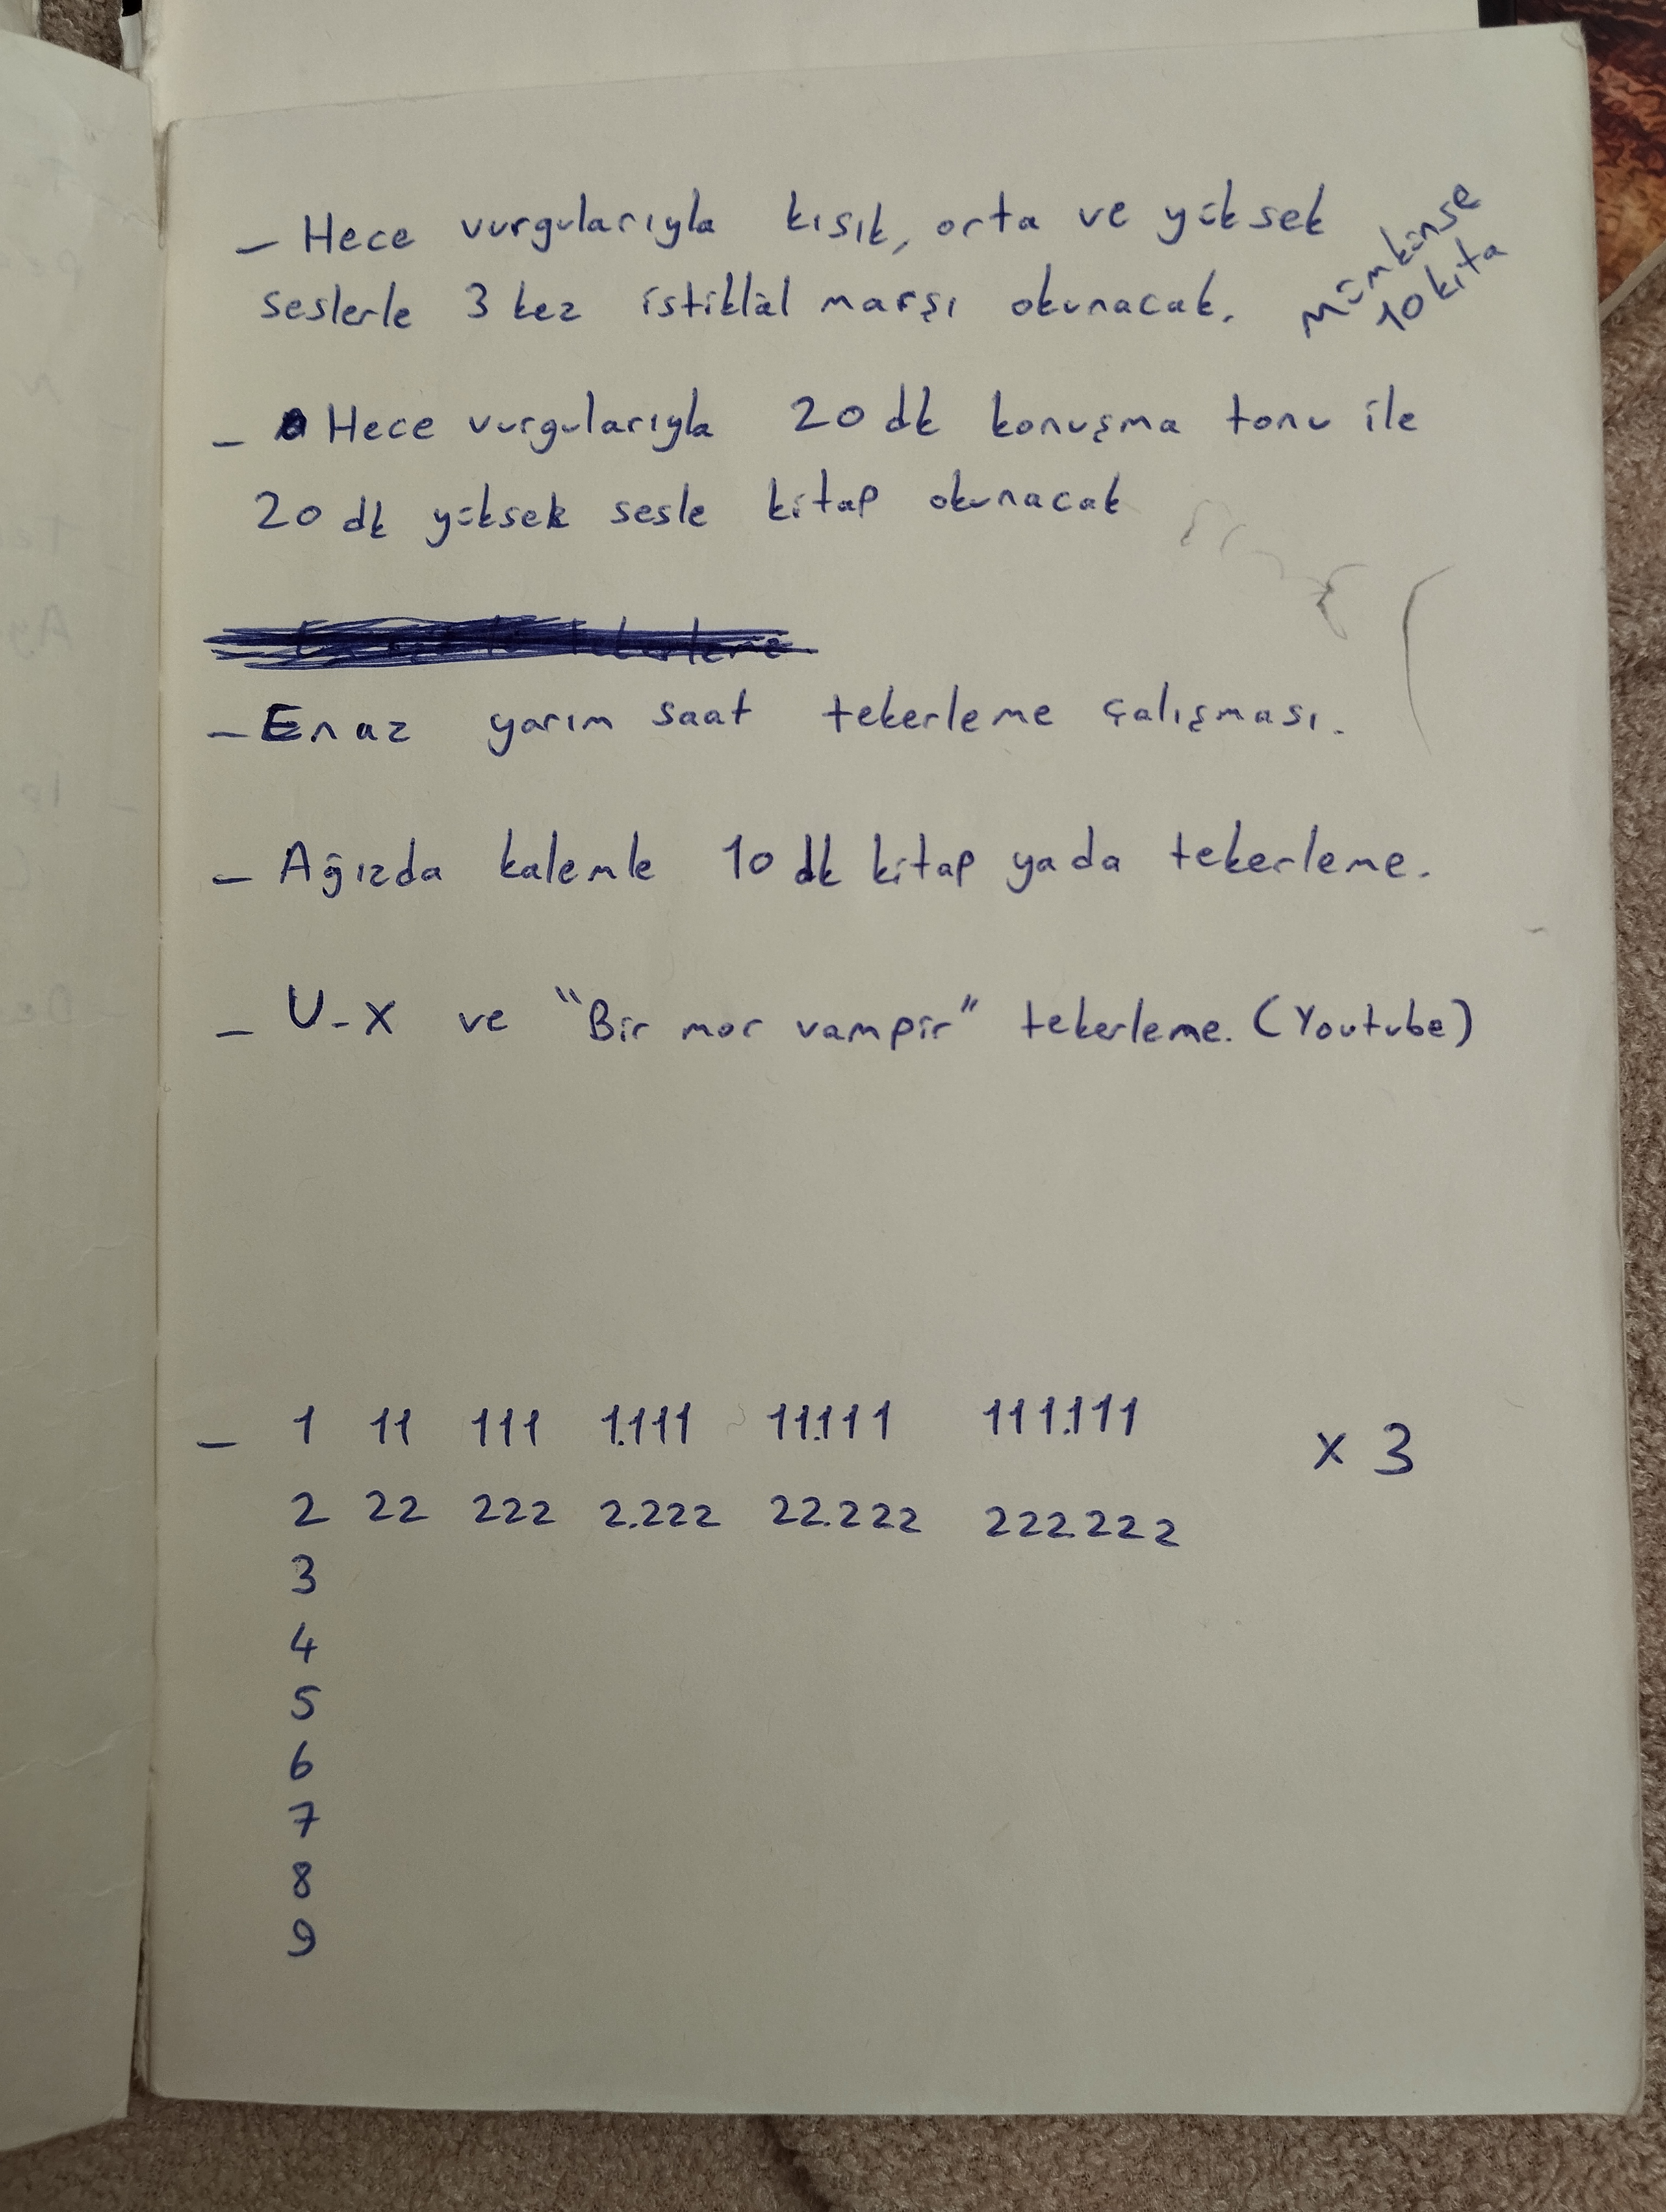 - Hece vurgularıyla kısık, orta ve yüksek
seslerle 3 kez istiklâl marşı okunacak.
Mümkünse
10 kıta
- Hece vurgularıyla 20 dk konuşma tonu ile
20 dk yüksek sesle kitap okunacak
- En az yarım saat tekerleme çalışması.
- Ağızda kalemle 10 dk kitap yada tekerleme.
- U-X ve "Bir mor vampir" tekerleme. (Youtube)
- 1 11 111 1.111 11.111 111.111 x 3
2 22 222 2.222 22.222 222.222
3
4
5
6
7
8
9